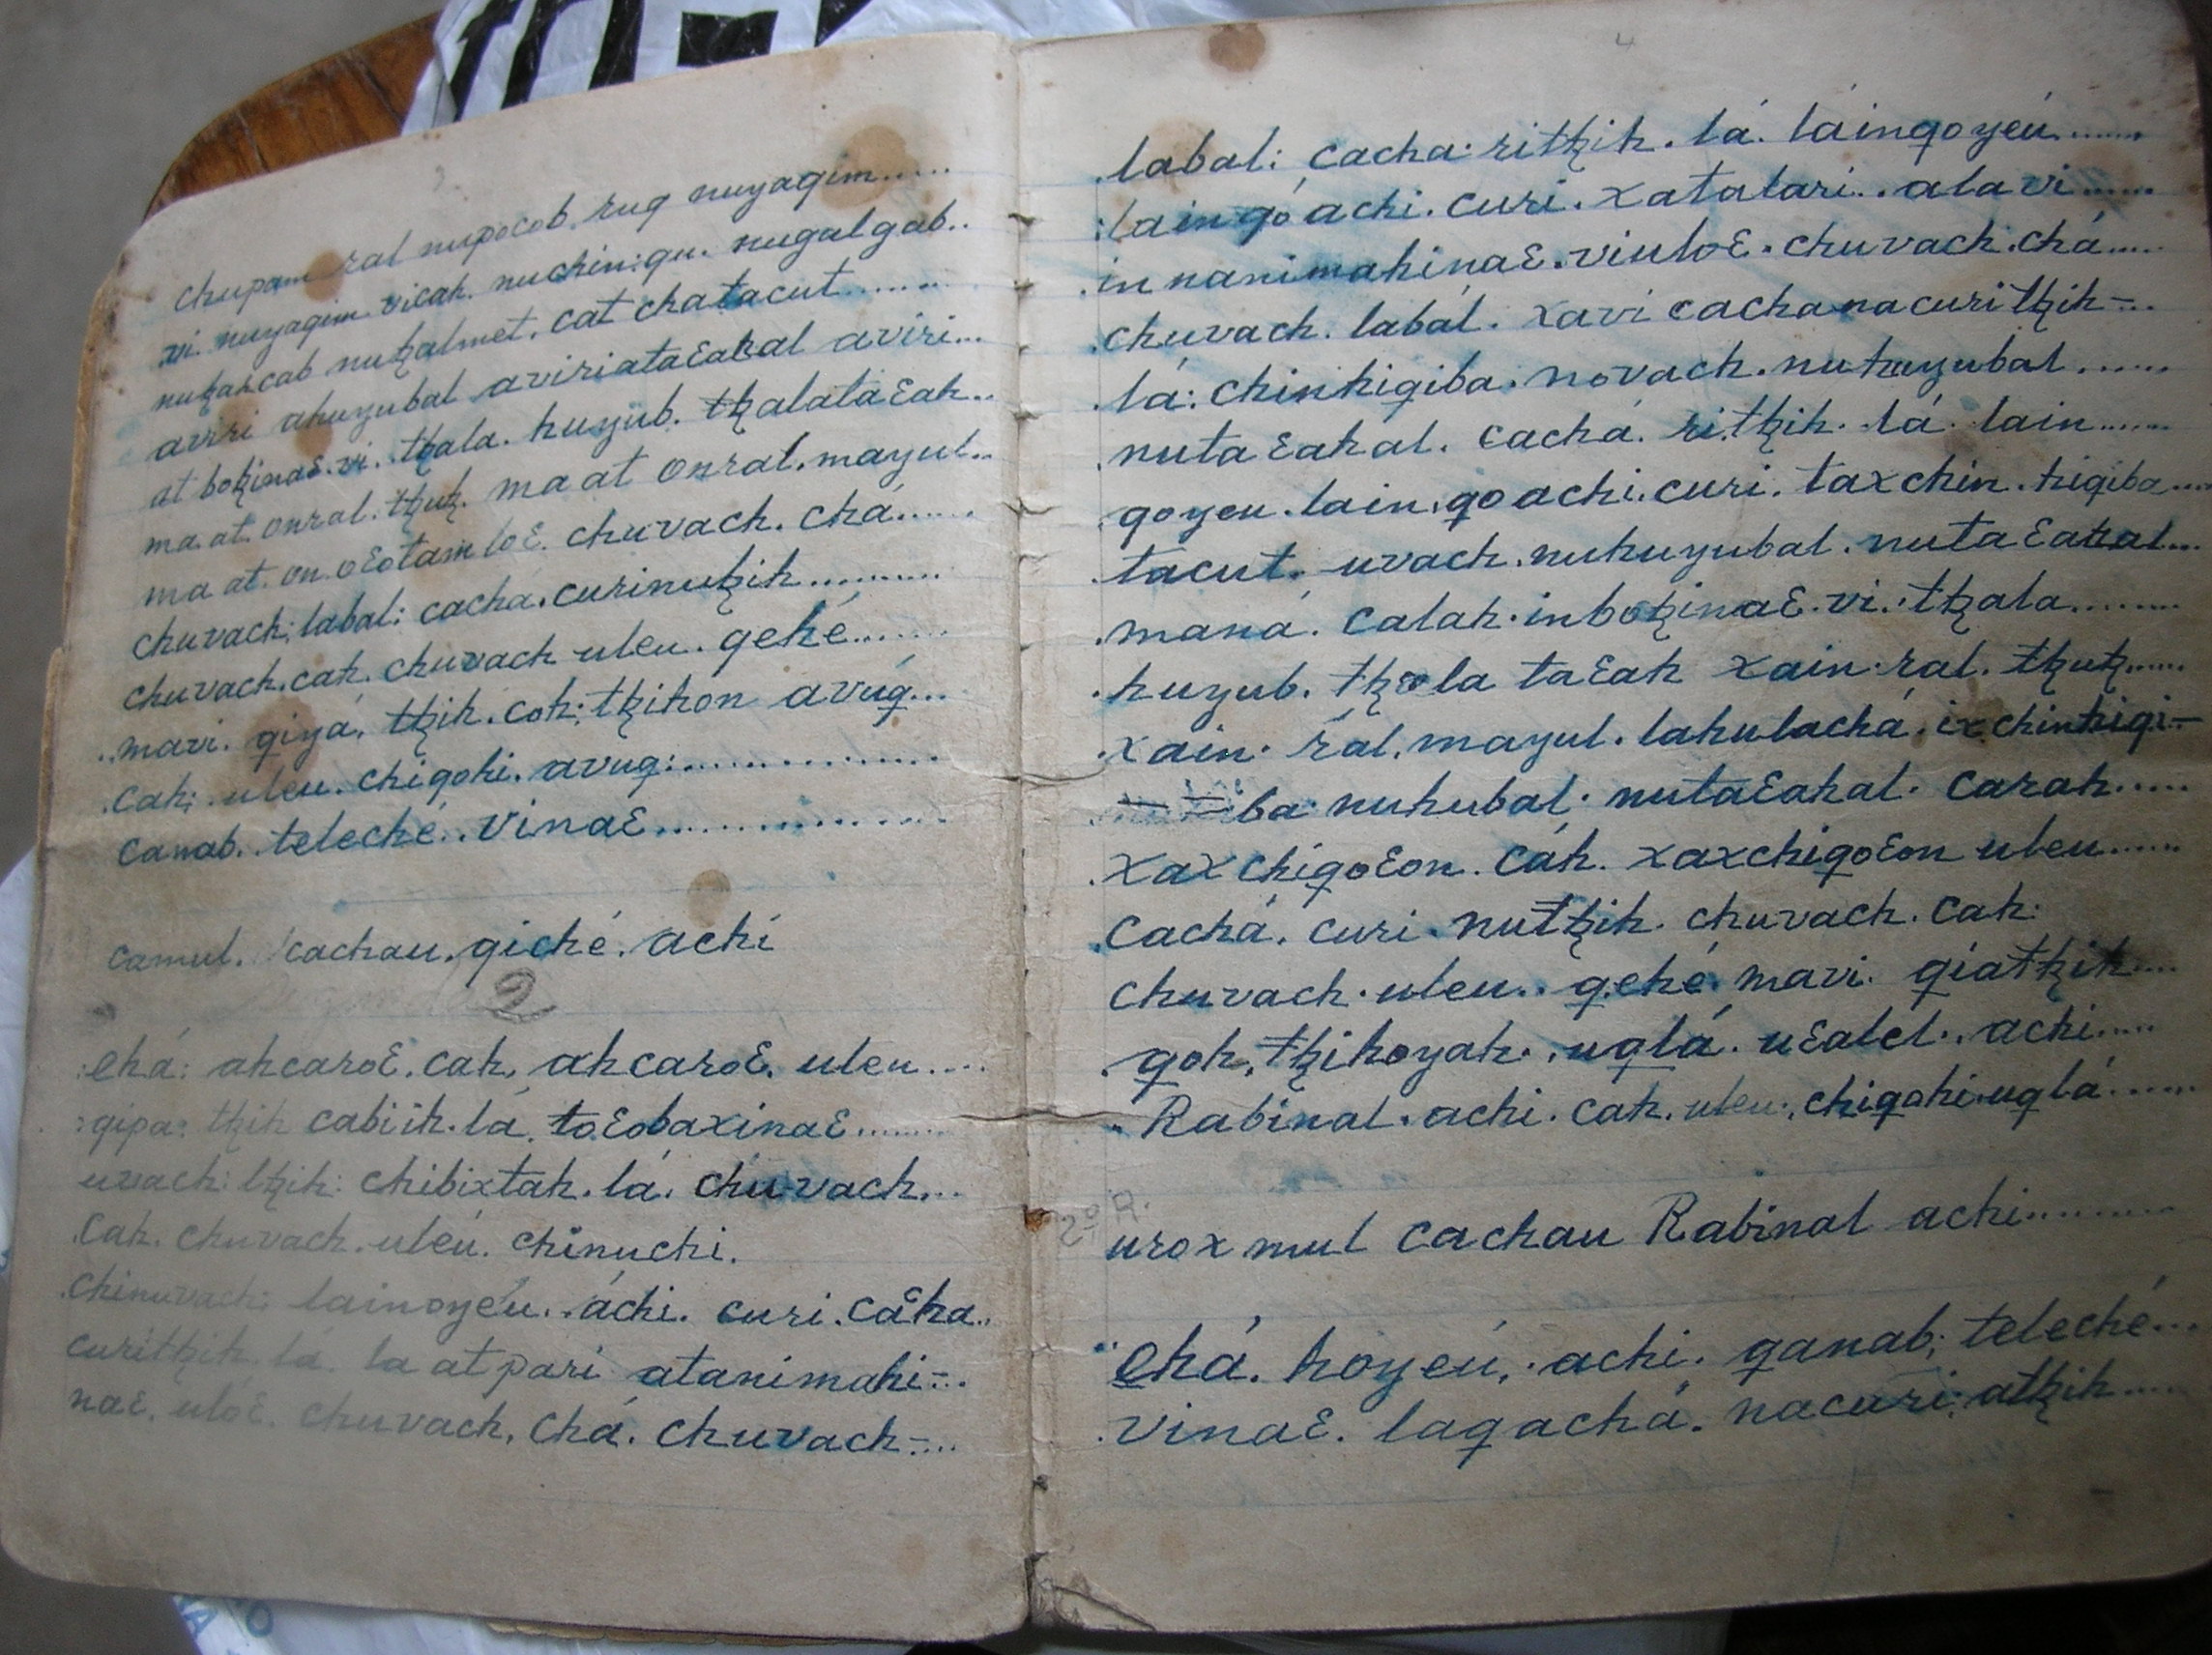 chupam ral nupocob. ruq nuyaqim......
vi nuyaqim vicah. nuchin:qu. nugulgab..
nuꜩahcab nuꜩalmet. cat chatacut........
aviri ahuyubal aviriataꜫahal aviri...
at boꜩinaꜫ. vi. tꜩala. huyub. tꜩalalaꜫah..
ma at. onral. tꜩuꜩ. ma at onral. mayul..
ma at. on. oꜫotam loꜫ. chuvach. chá......
chuvach; labal: cacha. curinuꜩih..........
chuvach. cah. chuvach uleu. gehé......
..mavi. qiyá, tꜩih. coh; tꜩihon avuq...
.cah; .uleu. chiqohi. avuq:...............
canab. teleché.. vinaꜫ...............
camul. cachau. giché. achí
2
:ehá: ahcaroꜫ. cah, ahcaroꜫ. uleu....
:qipa: tꜩih cabiih. lá. toꜫobaxinaꜫ.......
uvach: ltꜩih: chibixtah. lá. chuvach...
.cah. chuvach. uléu. chinuchi.
.chinuvach; lainoyéu.. áchi. curi. cacha..
curitꜩih. lá. la at pari atanimahi=..
naꜫ. uloꜫ. chuvach, chá. chuvach=...
4
.labal: cacha. ritꜩih. lá. láinqoyeú.......
:lainqó achi. curi. xatalari.. ala vi.....
.in nanimahinaꜫ. viuloꜫ. chuvach. chá....
.chuvach. labál. xavi cachanacuritꜩih=..
.lá: chinhiqiba. novach. nuhuyubal......
.nutaꜫahal. cachá. ri.tꜩih. lá. lain.....
.qoyeu. lain, qoachi. curi. taxchin. hiqiba...
.tacut. uvach. nuhuyubal. nutaꜫahal...
.maná. calah. inboꜩinaꜫ. vi. tꜩala........
.huyub. tꜩala taꜫah xain. ral. tꜩuꜩ.....
.xain. rál. mayul. lahulachá. ixchinhiqi=
iba nuhubal. nutaꜫahal. carah.....
.xax chiqoꜫon. cáh. xaxchiqoꜫon uleu.....
.cachá. curi. nutꜩih. chuvach. cah.
chuvach. uleu.. q.ehé. mavi. qiatꜩih....
.qoh, tꜩihoyah.. uqlá. uꜫalel.. achi....
.. Rabinal. achi. cah. uleu., chiqohi. uqlá......
2º R.
urox mul cachau Rabinal achi........
..ehá. hoyeú,. achi. qanab; teleché...
.vinaꜫ. laqachá. nacuri; atꜩih.....